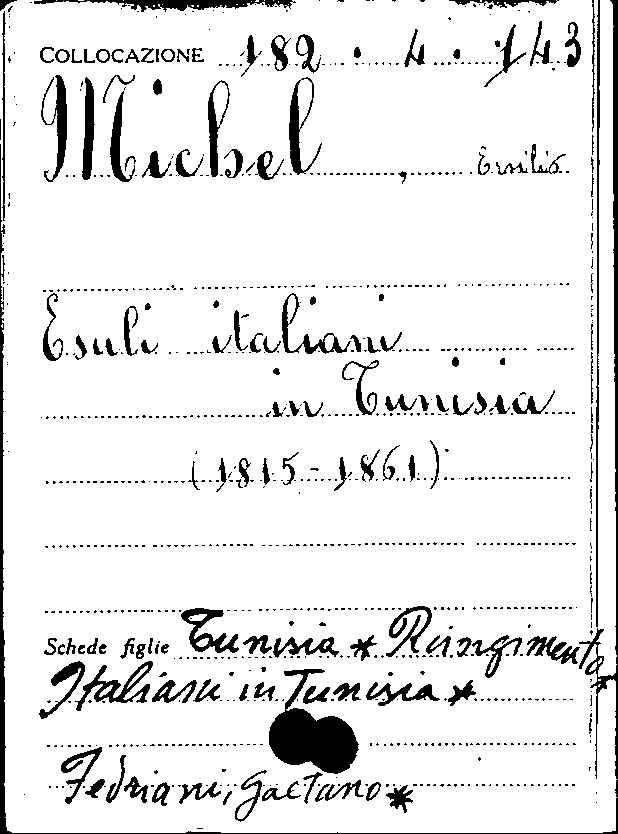 COLLOCAZIONE 182 . 4 . 143
Michel, Ersilio
Esuli italiani
in Tunisia
(1815-1861)
Schede figlie Tunisia * Risorgimento *
Italiani in Tunisia *
Fedriani, Gaetano *